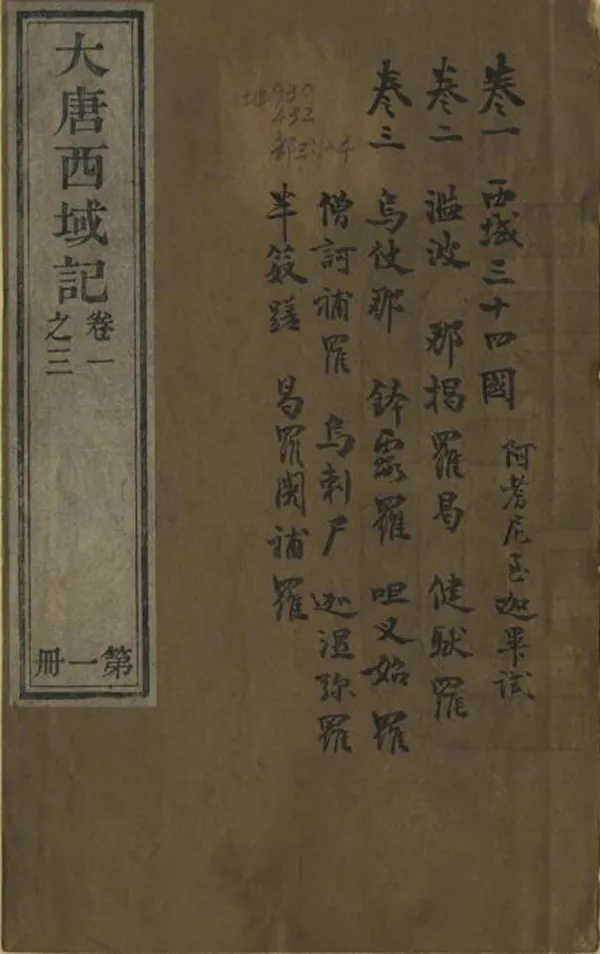 卷一 西域三十四國 阿耆尼至迦畢試
卷二 濫波 那揭羅曷 健馱羅
卷三 烏仗那 鉢露羅 呾叉始羅
僧訶補羅 烏剌尸 迦湿弥羅
半笯蹉 曷羅闍補羅
930
432
大唐西域記
卷一
之三
第一冊